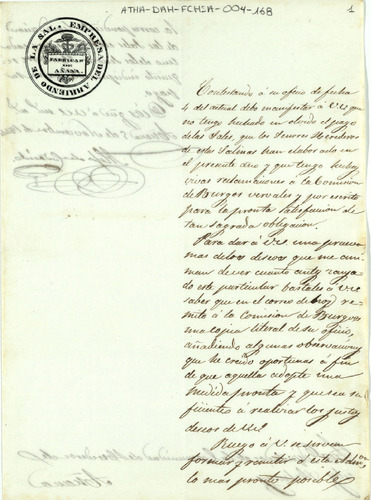 ATHA-DAH-FCHSA-004-16B
1
EMPRESA DEL ARRIENDO DE LA SAL.
FABRICAS DE AÑANA.
Contestando á su oficio de fecha
4 del actual debo manifestar á VS que
no tengo hechado en olvido el pago
de las Sales, que los Señores Herederos
de estas Salinas han elaborado en
el presente año y que tengo hechas
vivas reclamaciones á la Comision
de Burgos vervales y por escrito
para la pronta satisfaccion de
tan sagrada obligacion.
Para dar á VS una prueva
mas de los deseos que me ani
man de ver cuanto antes zanja
do este particular bastales á VS
saber que en el correo de hoy re
mito á la Comision de Burgos
una copia literal de su oficio,
añadiendo algunas observaciones
que he creido oportunas á fin
de que aquella adopte una
medida pronta y que sea su
ficiente á realizar los justos
deseos de VS.
Ruego á VS se sirvan
formar y remitir á esta Admon
lo mas pronto posible